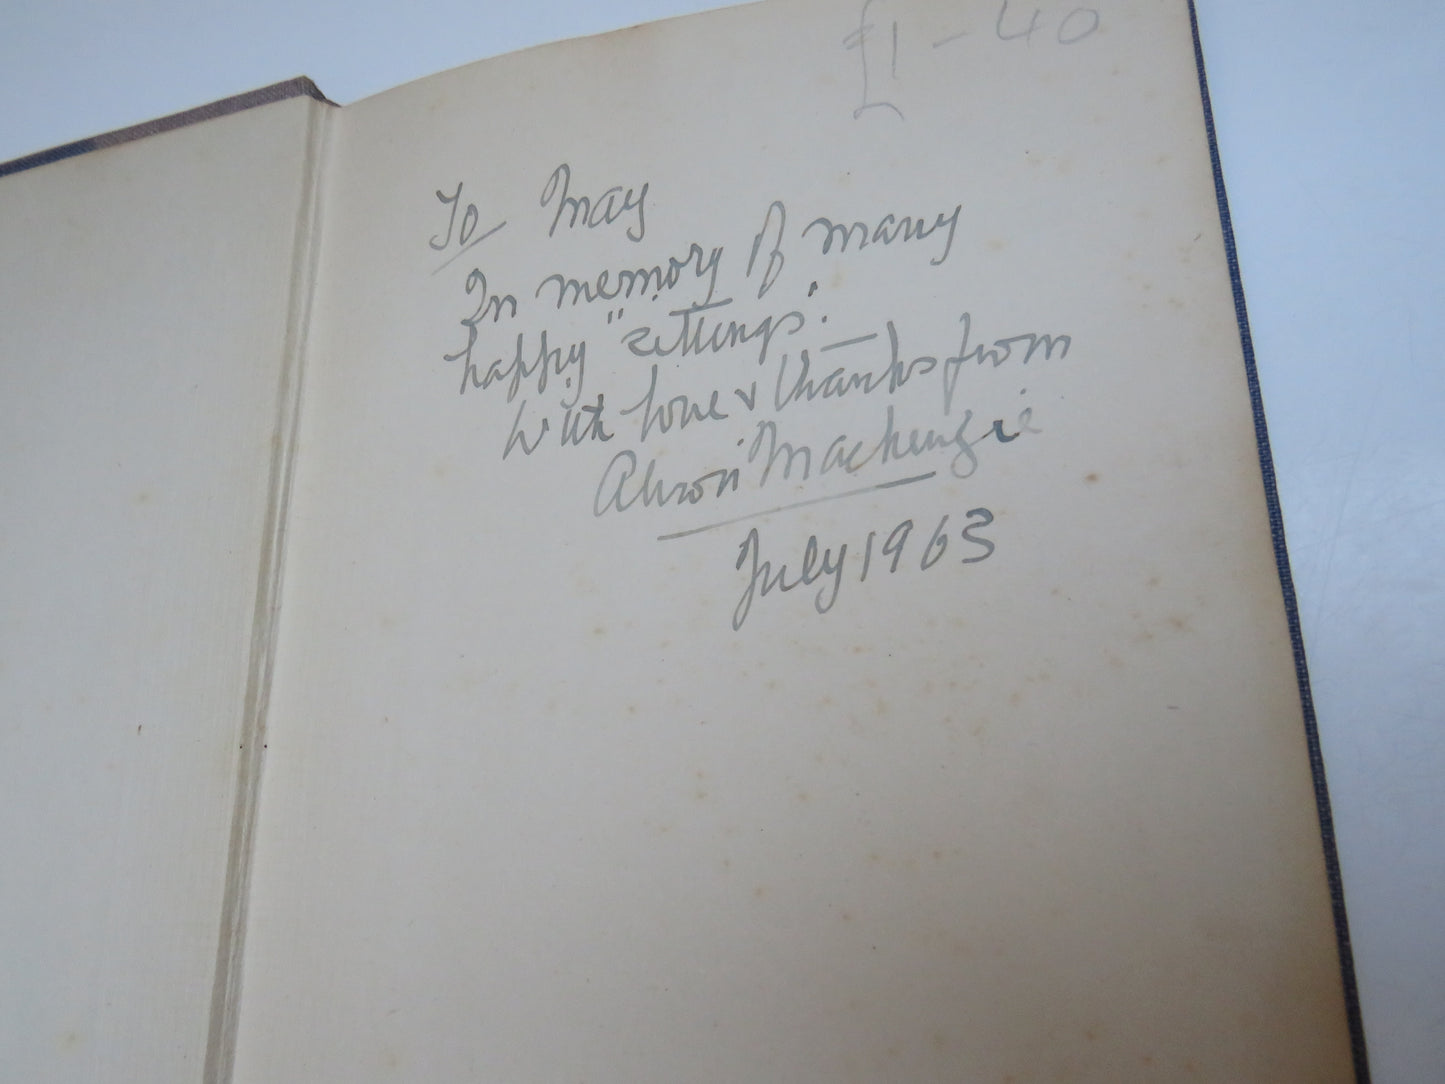 £1-40
To May
In memory of many
happy "sittings".
With love & thanks from
Alison Mackenzie
July 1963